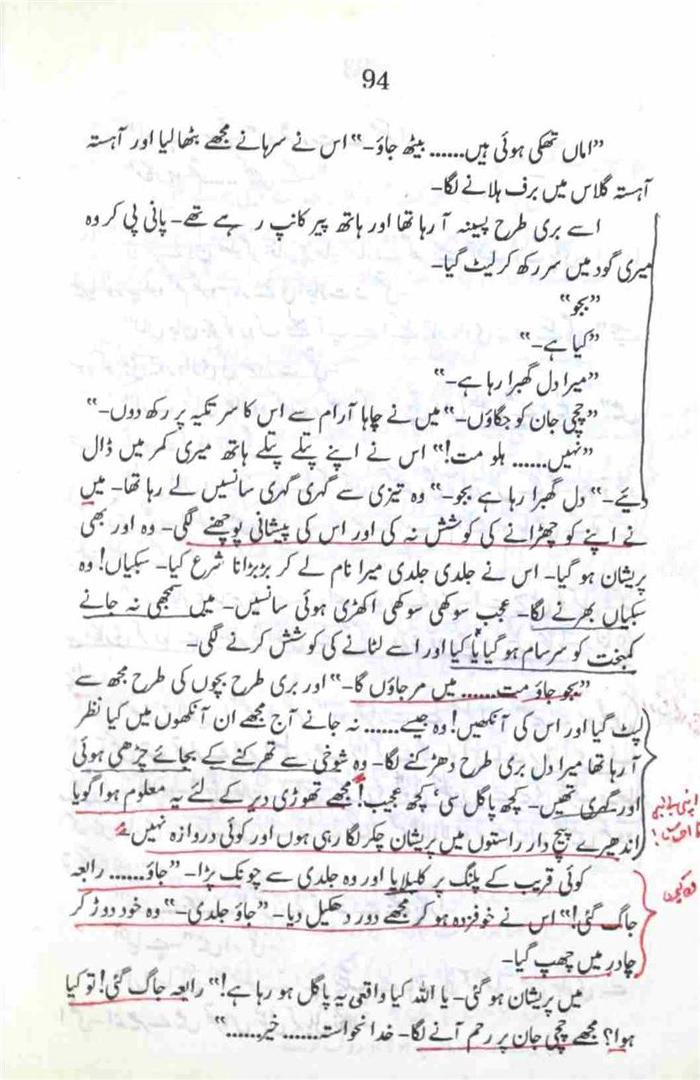 94
"اماں تھکی ہوئی ہیں...... بیٹھ جاؤ۔" اس نے سرہانے مجھے بٹھا لیا اور آہستہ
آہستہ گلاس میں برف ہلانے لگا۔
اسے بری طرح پسینہ آ رہا تھا اور ہاتھ پیر کانپ رہے تھے۔ پانی پی کر وہ
میری گود میں سر رکھ کر لیٹ گیا۔
"بجو"
"کیا ہے۔"
"میرا دل گھبرا رہا ہے۔"
"چچی جان کو جگاؤں۔" میں نے چاہا آرام سے اس کا سر تکیہ پر رکھ دوں۔"
"نہیں...... ہلو مت!" اس نے اپنے پتلے پتلے ہاتھ میری کمر میں ڈال
دیئے۔" دل گھبرا رہا ہے بجو۔" وہ تیزی سے گہری گہری سانسیں لے رہا تھا۔ میں
نے اپنے کو چھڑانے کی کوشش نہ کی اور اس کی پیشانی پوچھنے لگی۔ وہ اور بھی
پریشان ہو گیا۔ اس نے جلدی جلدی میرا نام لے کر بڑبڑانا شرع کیا۔ سبکیاں! وہ
سبکیاں بھرنے لگا۔ عجب سوکھی سوکھی اکھڑی ہوئی سانسیں۔ میں سمجھی نہ جانے
کمبخت کو سرسام ہو گیا یا کیا اور اسے لٹانے کی کوشش کرنے لگی۔
"بجو جاؤ مت...... میں مر جاؤں گا۔" اور بری طرح بچوں کی طرح مجھ سے
لپٹ گیا اور اس کی آنکھیں! وہ جیسے...... نہ جانے آج مجھے ان آنکھوں میں کیا نظر
آ رہا تھا میرا دل بری طرح دھڑکنے لگا۔ وہ شوخی سے تھرکنے کے بجائے چڑھی ہوئی
اور گہری تھیں۔ کچھ پاگل سی' کچھ عجیب! مجھے تھوڑی دیر کے لئے یہ معلوم ہوا گویا
اندھیرے پیچ دار راستوں میں پریشان چکر لگا رہی ہوں اور کوئی دروازہ نہیں۔
کوئی قریب کے پلنگ پر کلبلایا اور وہ جلدی سے چونک پڑا۔ "جاؤ...... رابعہ
جاگ گئی!" اس نے خوفزدہ ہو کر مجھے دور دھکیل دیا۔ "جاؤ جلدی۔" وہ خود دوڑ کر
چادر میں چھپ گیا۔
میں پریشان ہو گئی۔ یا اللہ کیا واقعی یہ پاگل ہو رہا ہے!" رابعہ جاگ گئی! تو کیا
ہوا؟ مجھے چچی جان پر رحم آنے لگا۔ خدا نخواستہ...... خیر......"